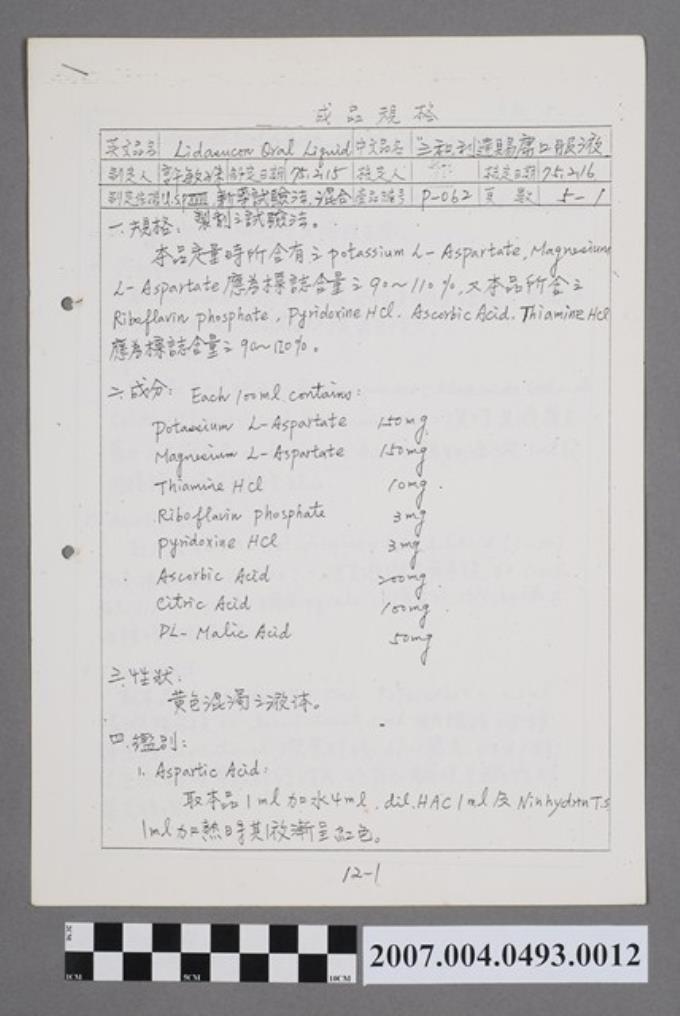 成品規格
英文品名 Lidasucon Oral Liquid 中文品名 "三和"利達賜康口服液
制定人 制定日期 75.2.15 檢定人 檢定日期 75.2.16
制定依據 U.S.P. 新藥試驗法.混合製劑之試驗法。 產品編號 P-062 頁數 5-1
一.規格:
本品定量時所含有之potassium L-Aspartate, Magnesium
L-Aspartate應為標誌含量之90~110%,又本品所含之
Riboflavin phosphate, Pyridoxine HCl. Ascorbic Acid. Thiamine HCl
應為標誌含量之90~120%。
二.成分: Each 100ml contains:
Potassium L-Aspartate 150mg.
Magnesium L-Aspartate 150mg
Thiamine HCl 10mg.
Riboflavin phosphate 3mg
pyridoxine HCl 3mg
Ascorbic Acid 200mg
Citric Acid 100mg.
DL-Malic Acid 50mg
三.性狀:
黃色混濁之液体。
四.鑑別:
1. Aspartic Acid:
取本品1ml加水4ml.dil.HAC 1ml及Ninhydrin T.S
1ml加熱時其液漸呈紅色。
12-1
1CM 5CM 10CM
2007.004.0493.0012